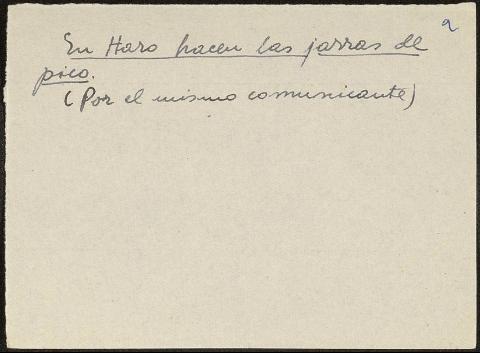 9
En Haro hacen las jarras de
pico.
(Por el mismo comunicante)